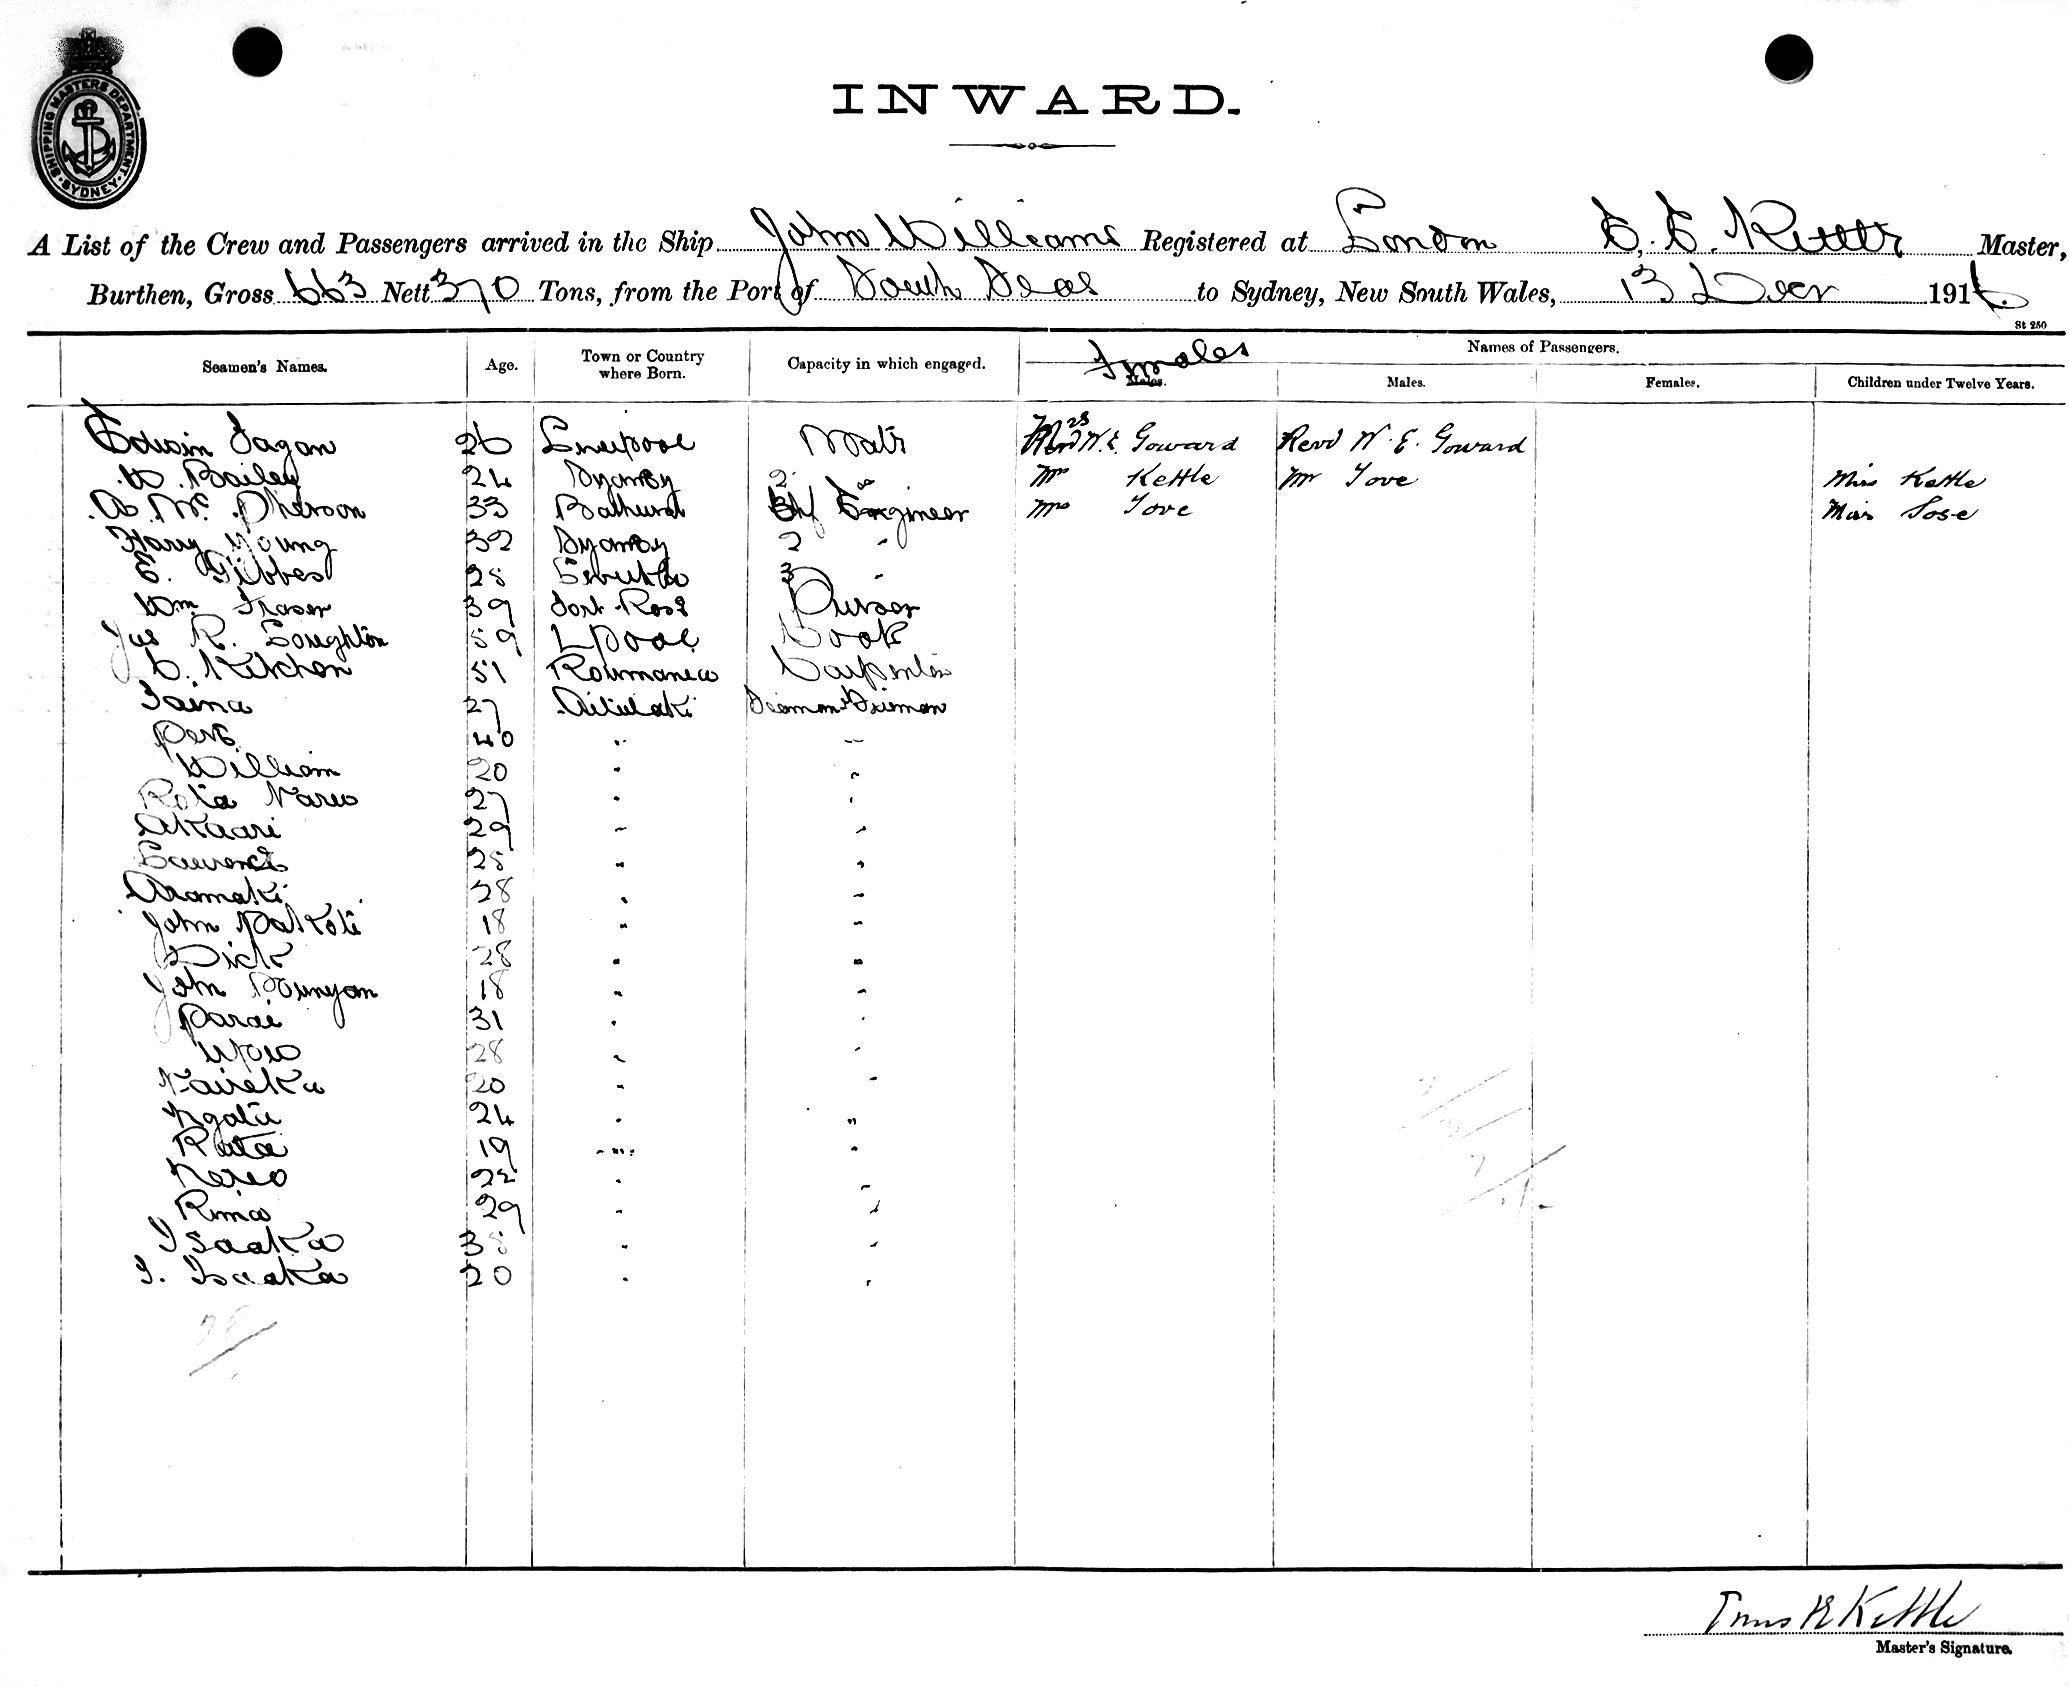 SHIPPING MASTERS DEPARTMENT
SYDNEY
INWARD.
A List of the Crew and Passengers arrived in the Ship John Williams Registered at London Kettle Master,
Burthen, Gross 663 Nett 370 Tons, from the Port of South Seas to Sydney, New South Wales, 13 Decr 1916
St 250
Seamen's Names. Age. Town or Country where Born. Capacity in which engaged. Names of Passengers.
Females Males. Males. Females. Children under Twelve Years.
Edwin Fagan 26 Liverpool Mate Mrs W. E. Goward Revd W. E. Goward
W. Bailey 24 Sydney 2 " Mrs Kettle Mr Tove Miss Kettle
A. McPherson 33 Bathurst Chf Engineer Mrs Tove Miss Tose
Harry Young 32 Sydney 2 "
E. Gibbes 28 3 "
Wm Fraser 39 Fort Rose Purser
Jas R. Loughton 59 Lpool Cook
C. Kitchen 51 Roumania Carpenter
Taina 27 Aitutaki Seaman & Fireman
40 " "
William 20 " "
27 " "
Akaari 29 " "
Lawrence 28 " "
Aramaki 28 " "
John 18 " "
Dick 28 " "
John Bunyan 18 " "
Parai 31 " "
28 " "
20 " "
24 " "
19 " "
22 " "
Rima 29 " "
Isaaka 38 " "
T. Isaaka 20 " "
Kettle
Master's Signature.